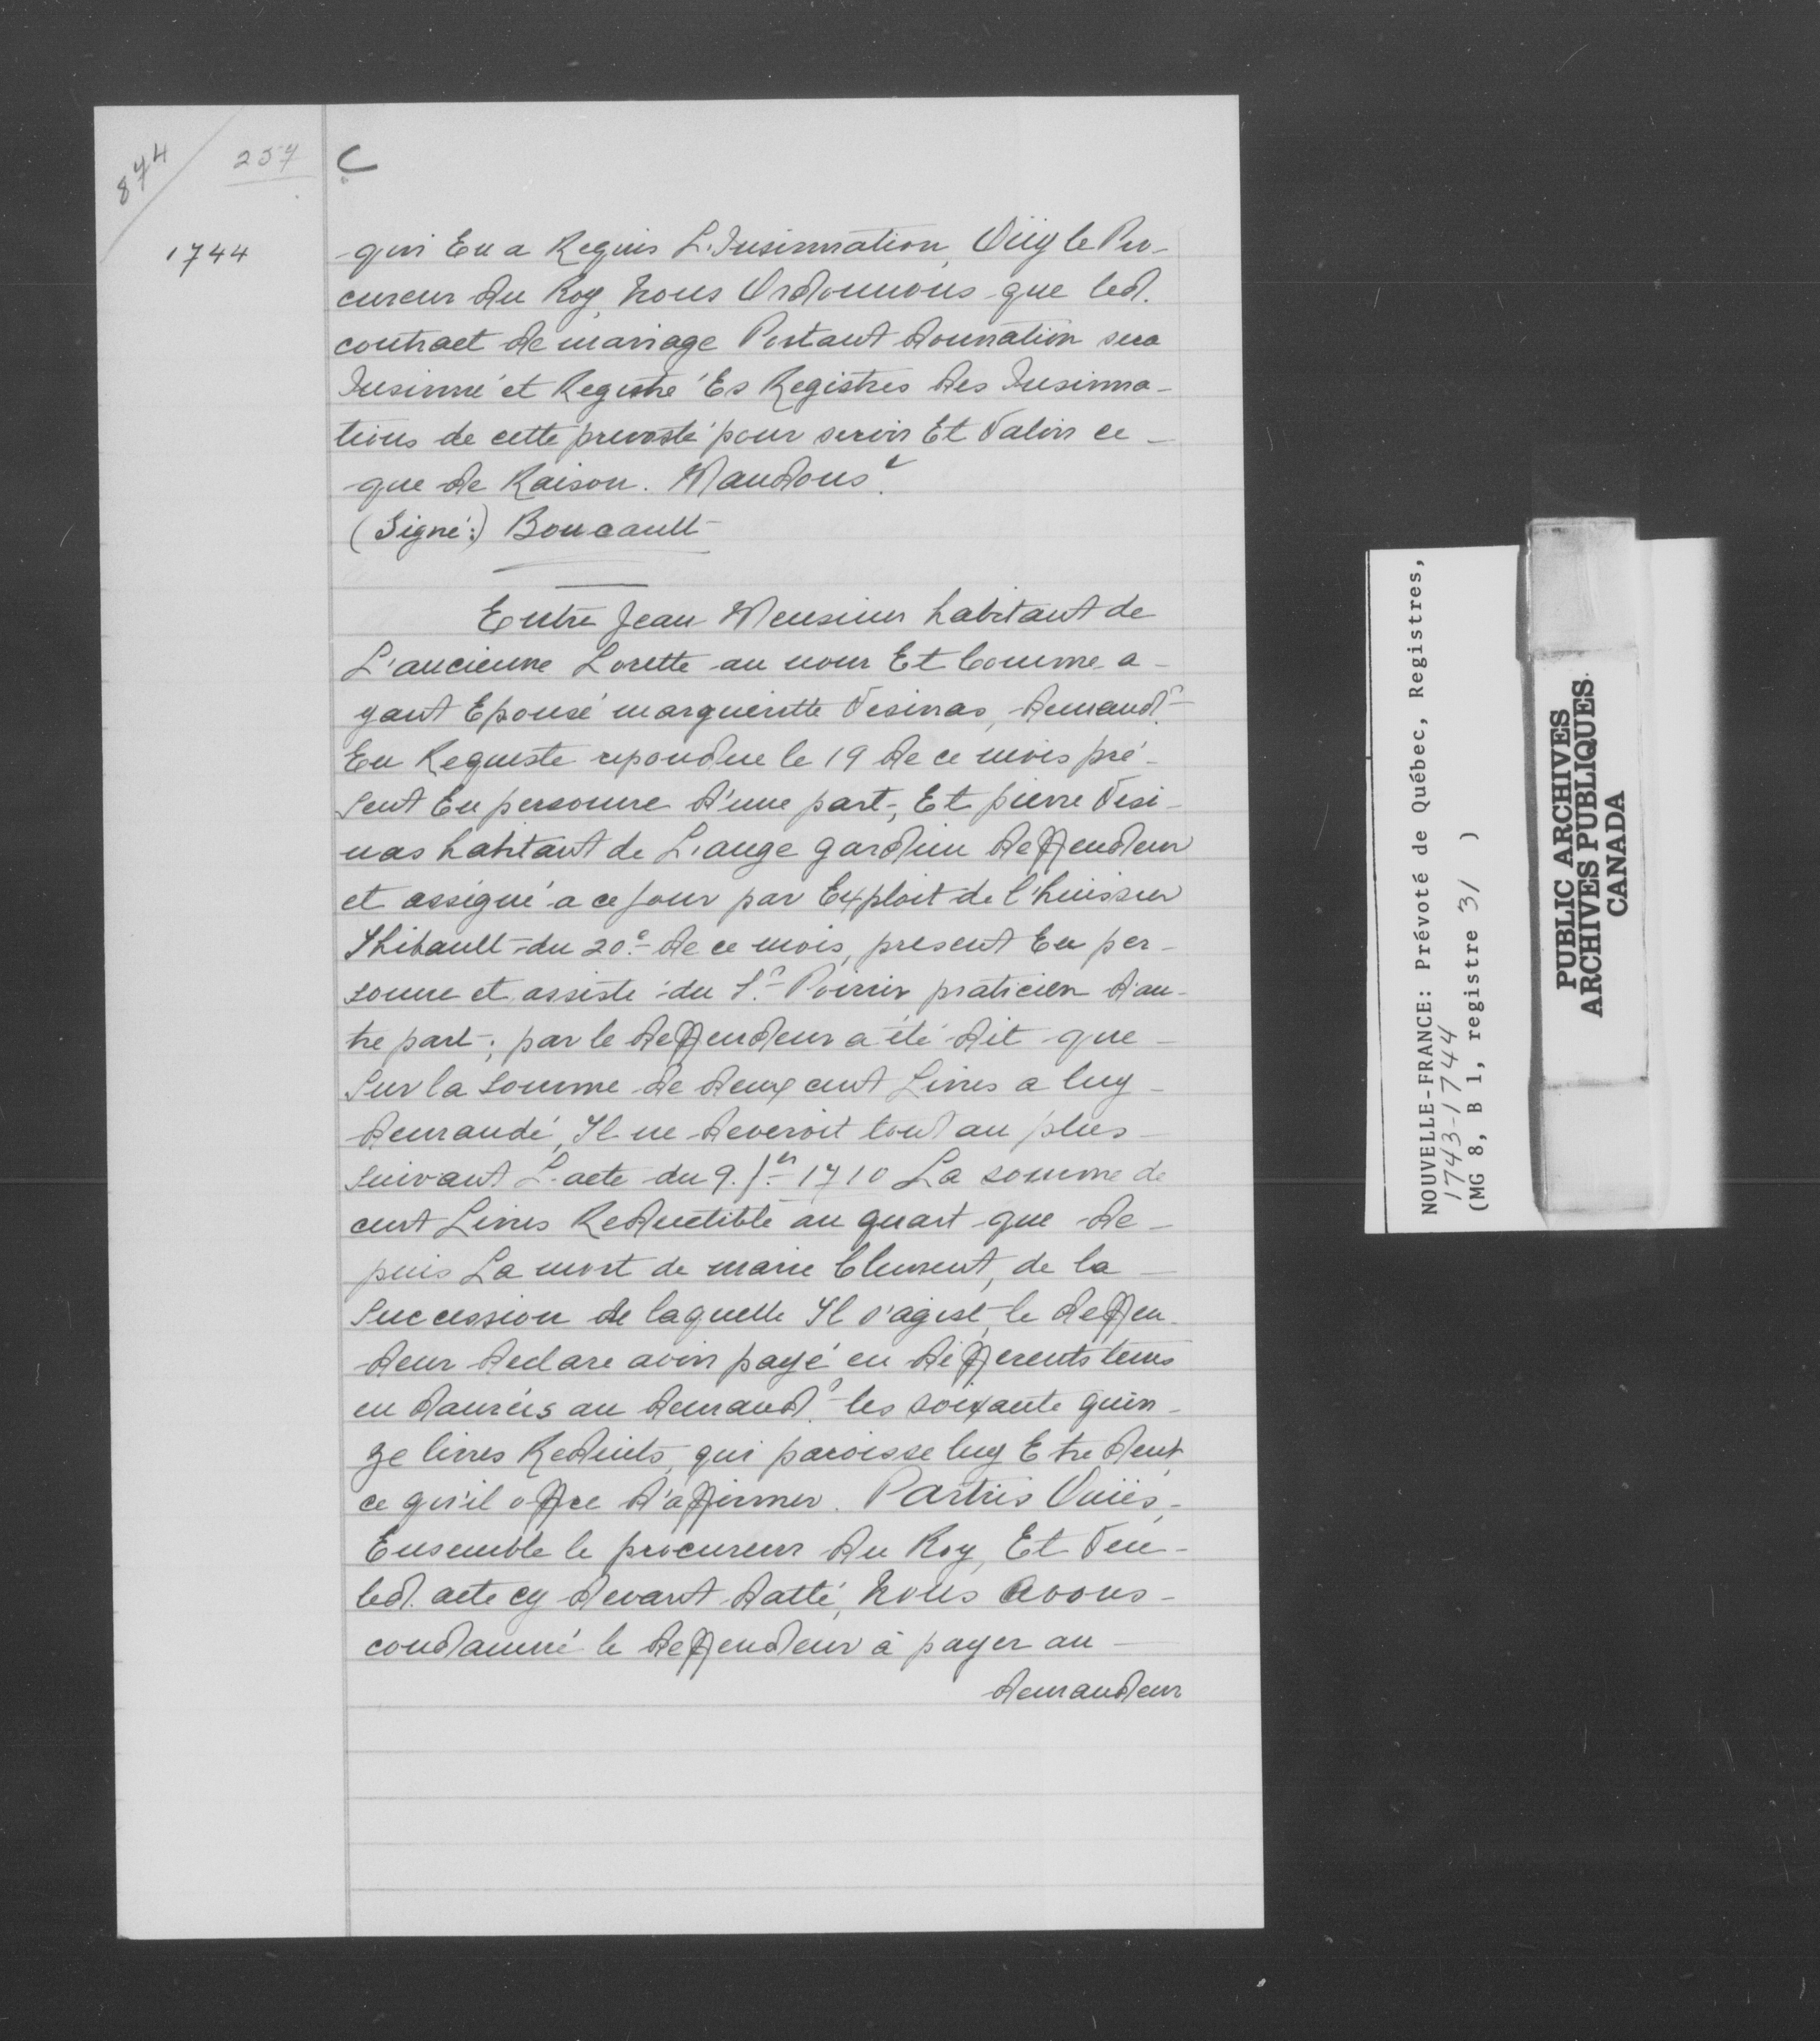 874
257
C
1744
qui En a Requis L'Insinuation, Oüy le Pro-
cureur du Roy, Nous Ordonnons que led.
contract de mariage Portant donnation sera
Insinué et Registré Es Registres des Insinua-
tions de cette prevosté pour servir Et Valoir ce
que de Raison. Mandons &.
(Signé:) Boucault
Entre Jean Meusnier habitant de
L'ancienne Lorette au nom Et Comme a-
yant Epousé margueritte Vesinas, demand.r
En Requeste repondue le 19 de ce mois pré-
sent En personne d'une part, Et pierre Vesi-
nas habitant de L'ange gardien deffendeur
et assigné a ce jour par Exploit de l'huissier
Thibault du 20e de ce mois, present En per-
sonne et assisté du S.r Poirier praticien d'au-
tre part; par le deffendeur a été dit que
Sur la Somme de deux cent Livres a luy
demandé, Il ne deveroit tout au plus
suivant L'acte du 9. 1710 La somme de
cent Livres Reductible au quart que de-
puis La mort de marie Clement, de la
Succession de laquelle Il s'agist, le deffen-
deur declare avoir payé en differents tems
en danréis au demand.r les soixante quin-
ze livres Reduits, qui paroisse luy Etre deut,
ce qu'il offre d'affirmer. Parties Ouiés,
Ensemble le procureur du Roy, Et Veu
led. acte cy devant datté, Nous Avons
condamné le deffendeur à payer au
demandeur
NOUVELLE-FRANCE: Prévoté de Québec, Registres,
1743-1744
(MG 8, B 1, registre 31 )
PUBLIC ARCHIVES
ARCHIVES PUBLIQUES
CANADA